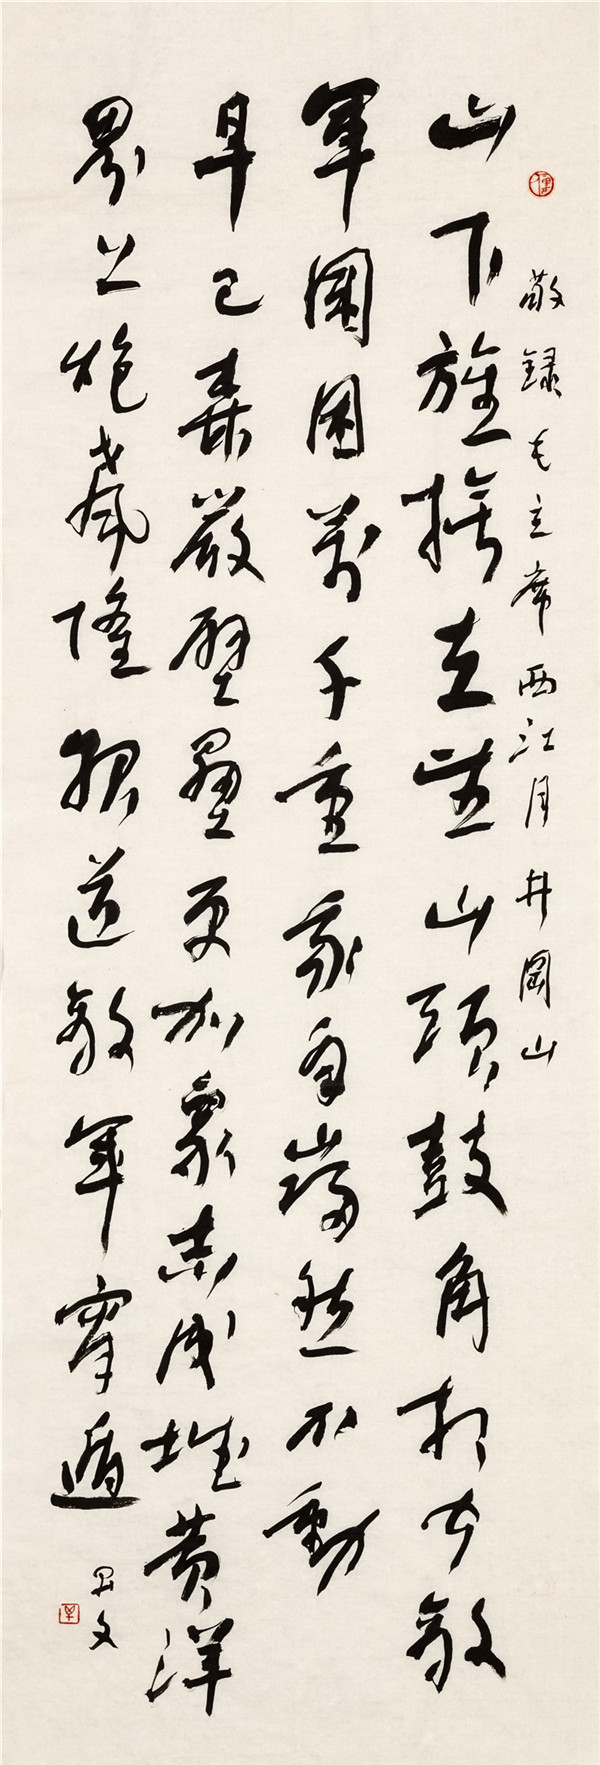 敬録毛主席西江月井岡山
山下旌旗在望山頭鼓角相聞敵
軍圍困萬千重我自巋然不動
早已森嚴壁壘更加衆志成城黄洋
界上炮聲隆報道敵軍宵遁
文